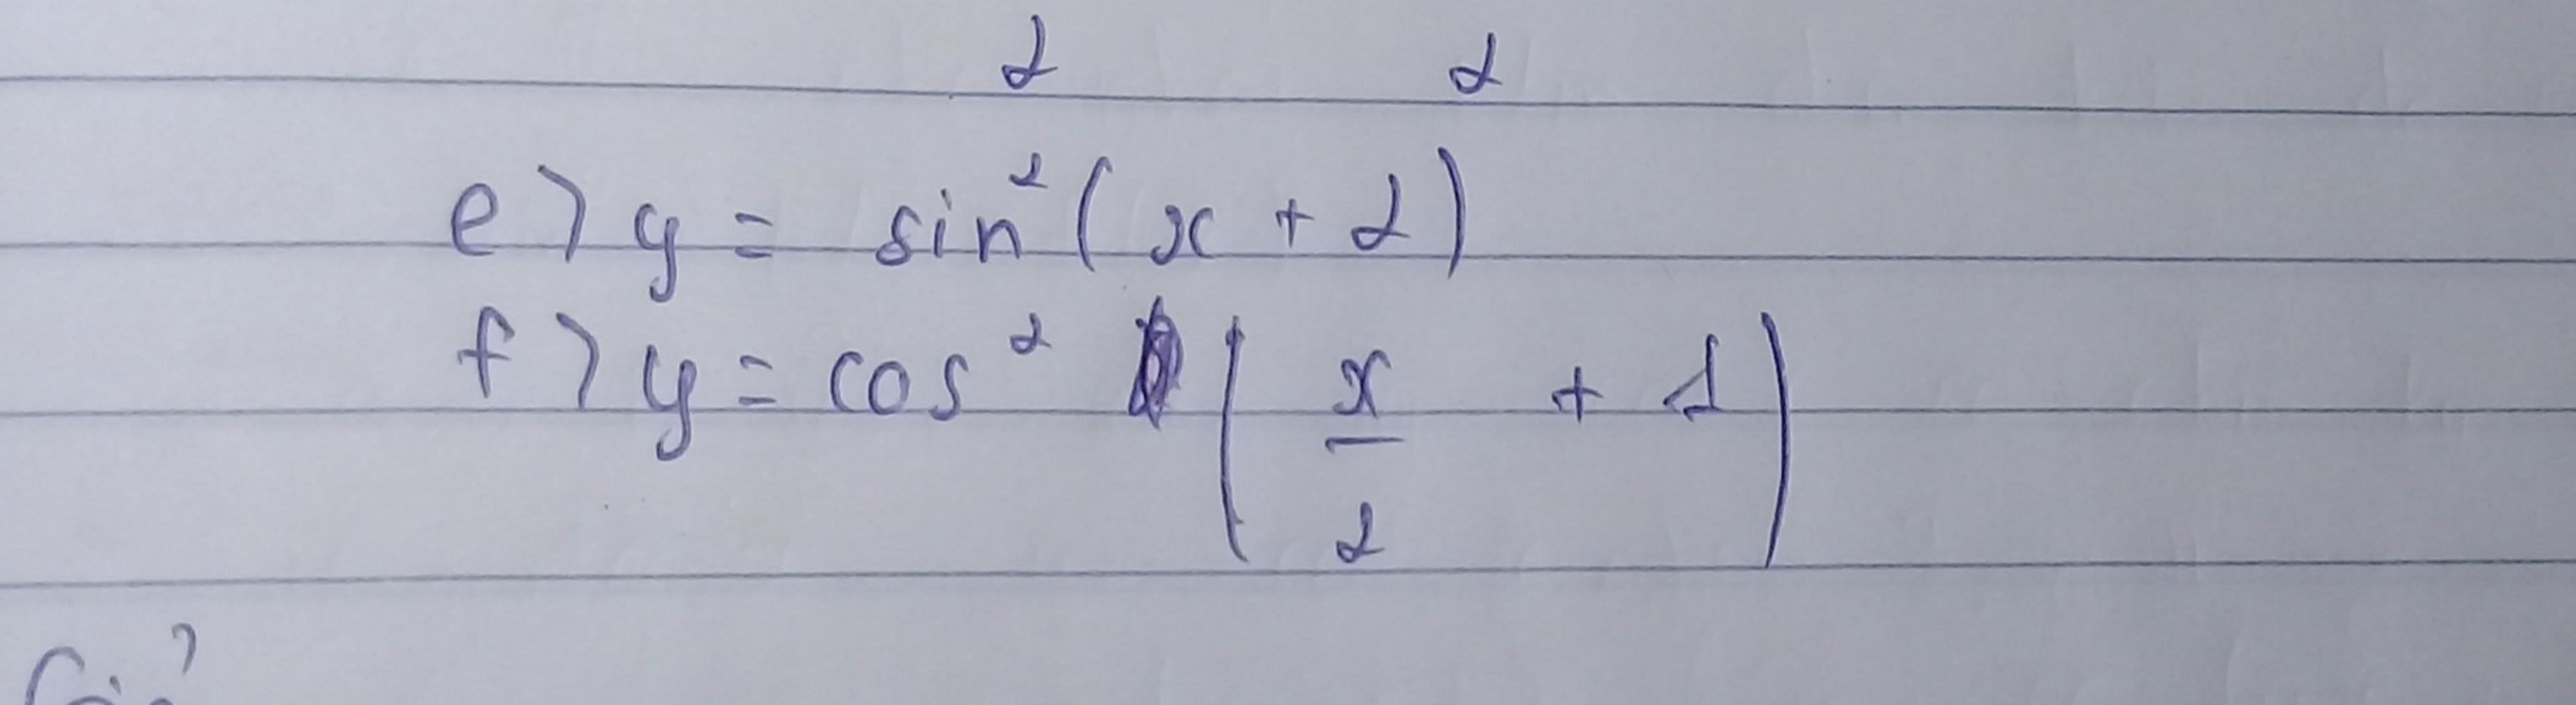 2 2
e) y = sin²(x + 2)
f) y = cos² (x/2 + 1)